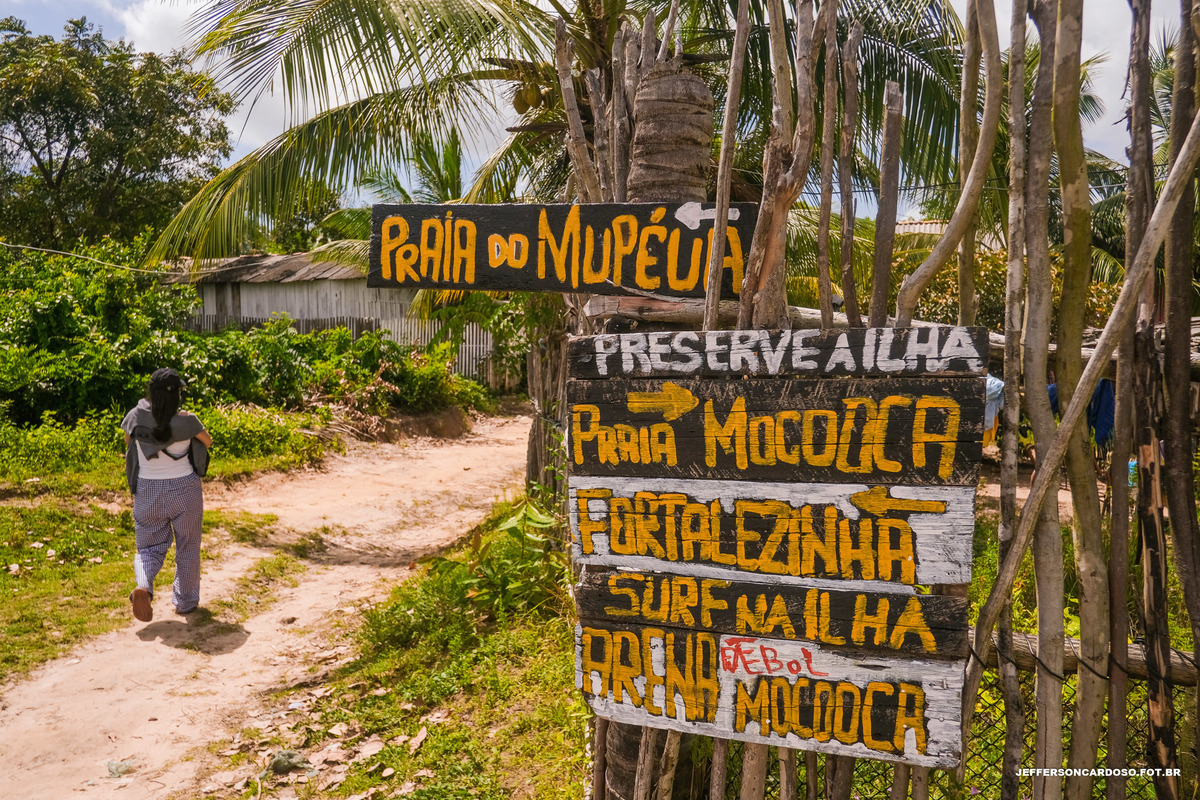 PRAÍA DO MUPÉUA
PRESERVE A ILHA
PRAIA MOCOOCA
FORTALEZINHA
SURF NA ILHA
ARENA MOCOOCA
JEFFERSONCARDOSO.FOT.BR